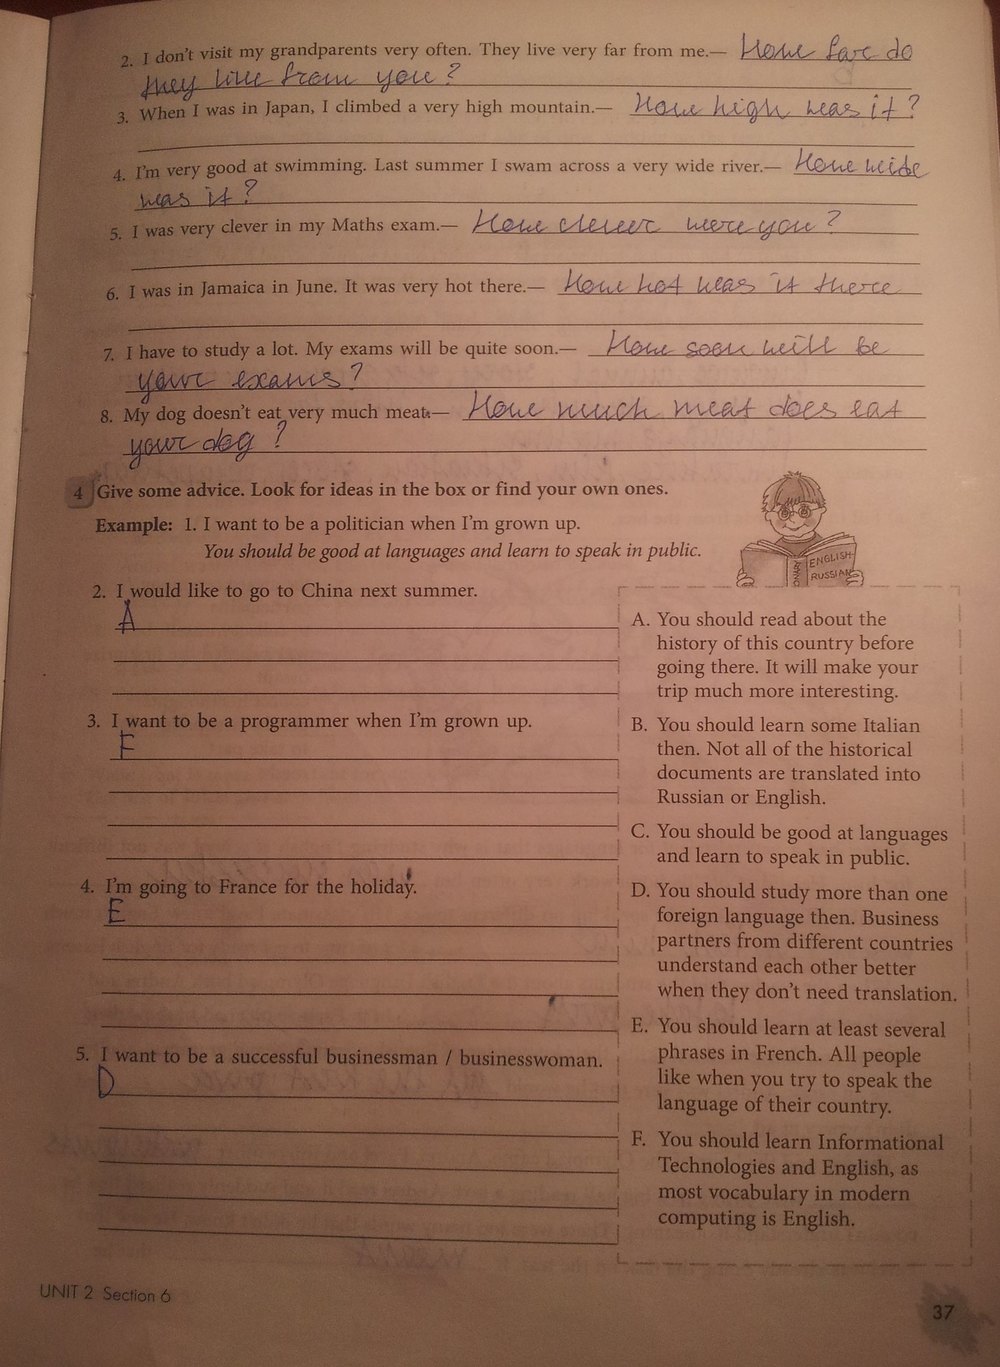 2. I don't visit my grandparents very often. They live very far from me.— How far do
they live from you?
3. When I was in Japan, I climbed a very high mountain.— How high was it?
4. I'm very good at swimming. Last summer I swam across a very wide river.— How wide
was it?
5. I was very clever in my Maths exam.— How clever were you?
6. I was in Jamaica in June. It was very hot there.— How hot was it there
7. I have to study a lot. My exams will be quite soon.— How soon will be
your exams?
8. My dog doesn't eat very much meat.— How much meat does eat
your dog?
4 Give some advice. Look for ideas in the box or find your own ones.
Example: 1. I want to be a politician when I'm grown up.
You should be good at languages and learn to speak in public.
ENGLISH-
RUSSIAN
2. I would like to go to China next summer.
A
3. I want to be a programmer when I'm grown up.
F
4. I'm going to France for the holiday.
E
5. I want to be a successful businessman / businesswoman.
D
A. You should read about the
history of this country before
going there. It will make your
trip much more interesting.
B. You should learn some Italian
then. Not all of the historical
documents are translated into
Russian or English.
C. You should be good at languages
and learn to speak in public.
D. You should study more than one
foreign language then. Business
partners from different countries
understand each other better
when they don't need translation.
E. You should learn at least several
phrases in French. All people
like when you try to speak the
language of their country.
F. You should learn Informational
Technologies and English, as
most vocabulary in modern
computing is English.
UNIT 2 Section 6
37